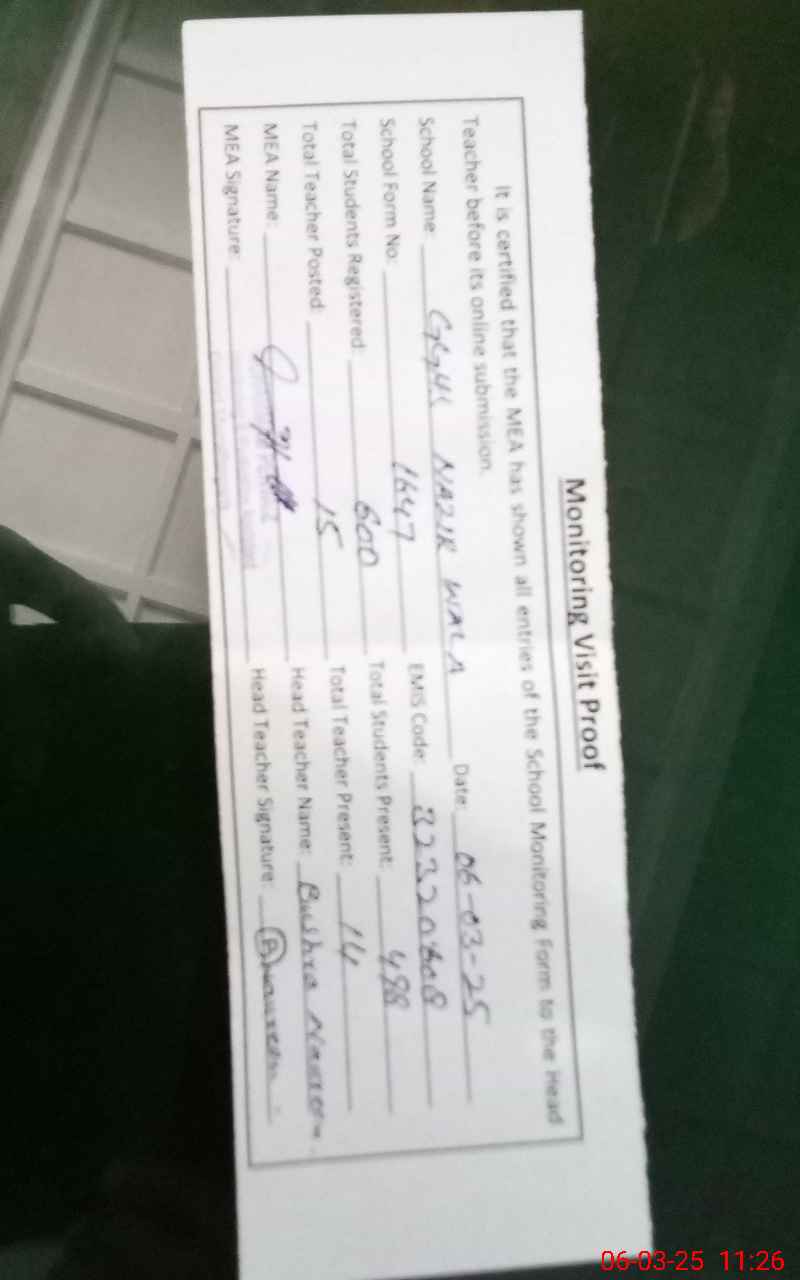 Monitoring Visit Proof
It is certified that the MEA has shown all entries of the School Monitoring Form to the Head
Teacher before its online submission.
School Name: NAZIR WALA Date: 06-03-25
School Form No: 1647 EMIS Code: 32320808
Total Students Registered: 600 Total Students Present: 498
Total Teacher Posted: 15 Total Teacher Present: 14
MEA Name: Head Teacher Name: Bushra
MEA Signature: Head Teacher Signature:
06-03-25 11:26